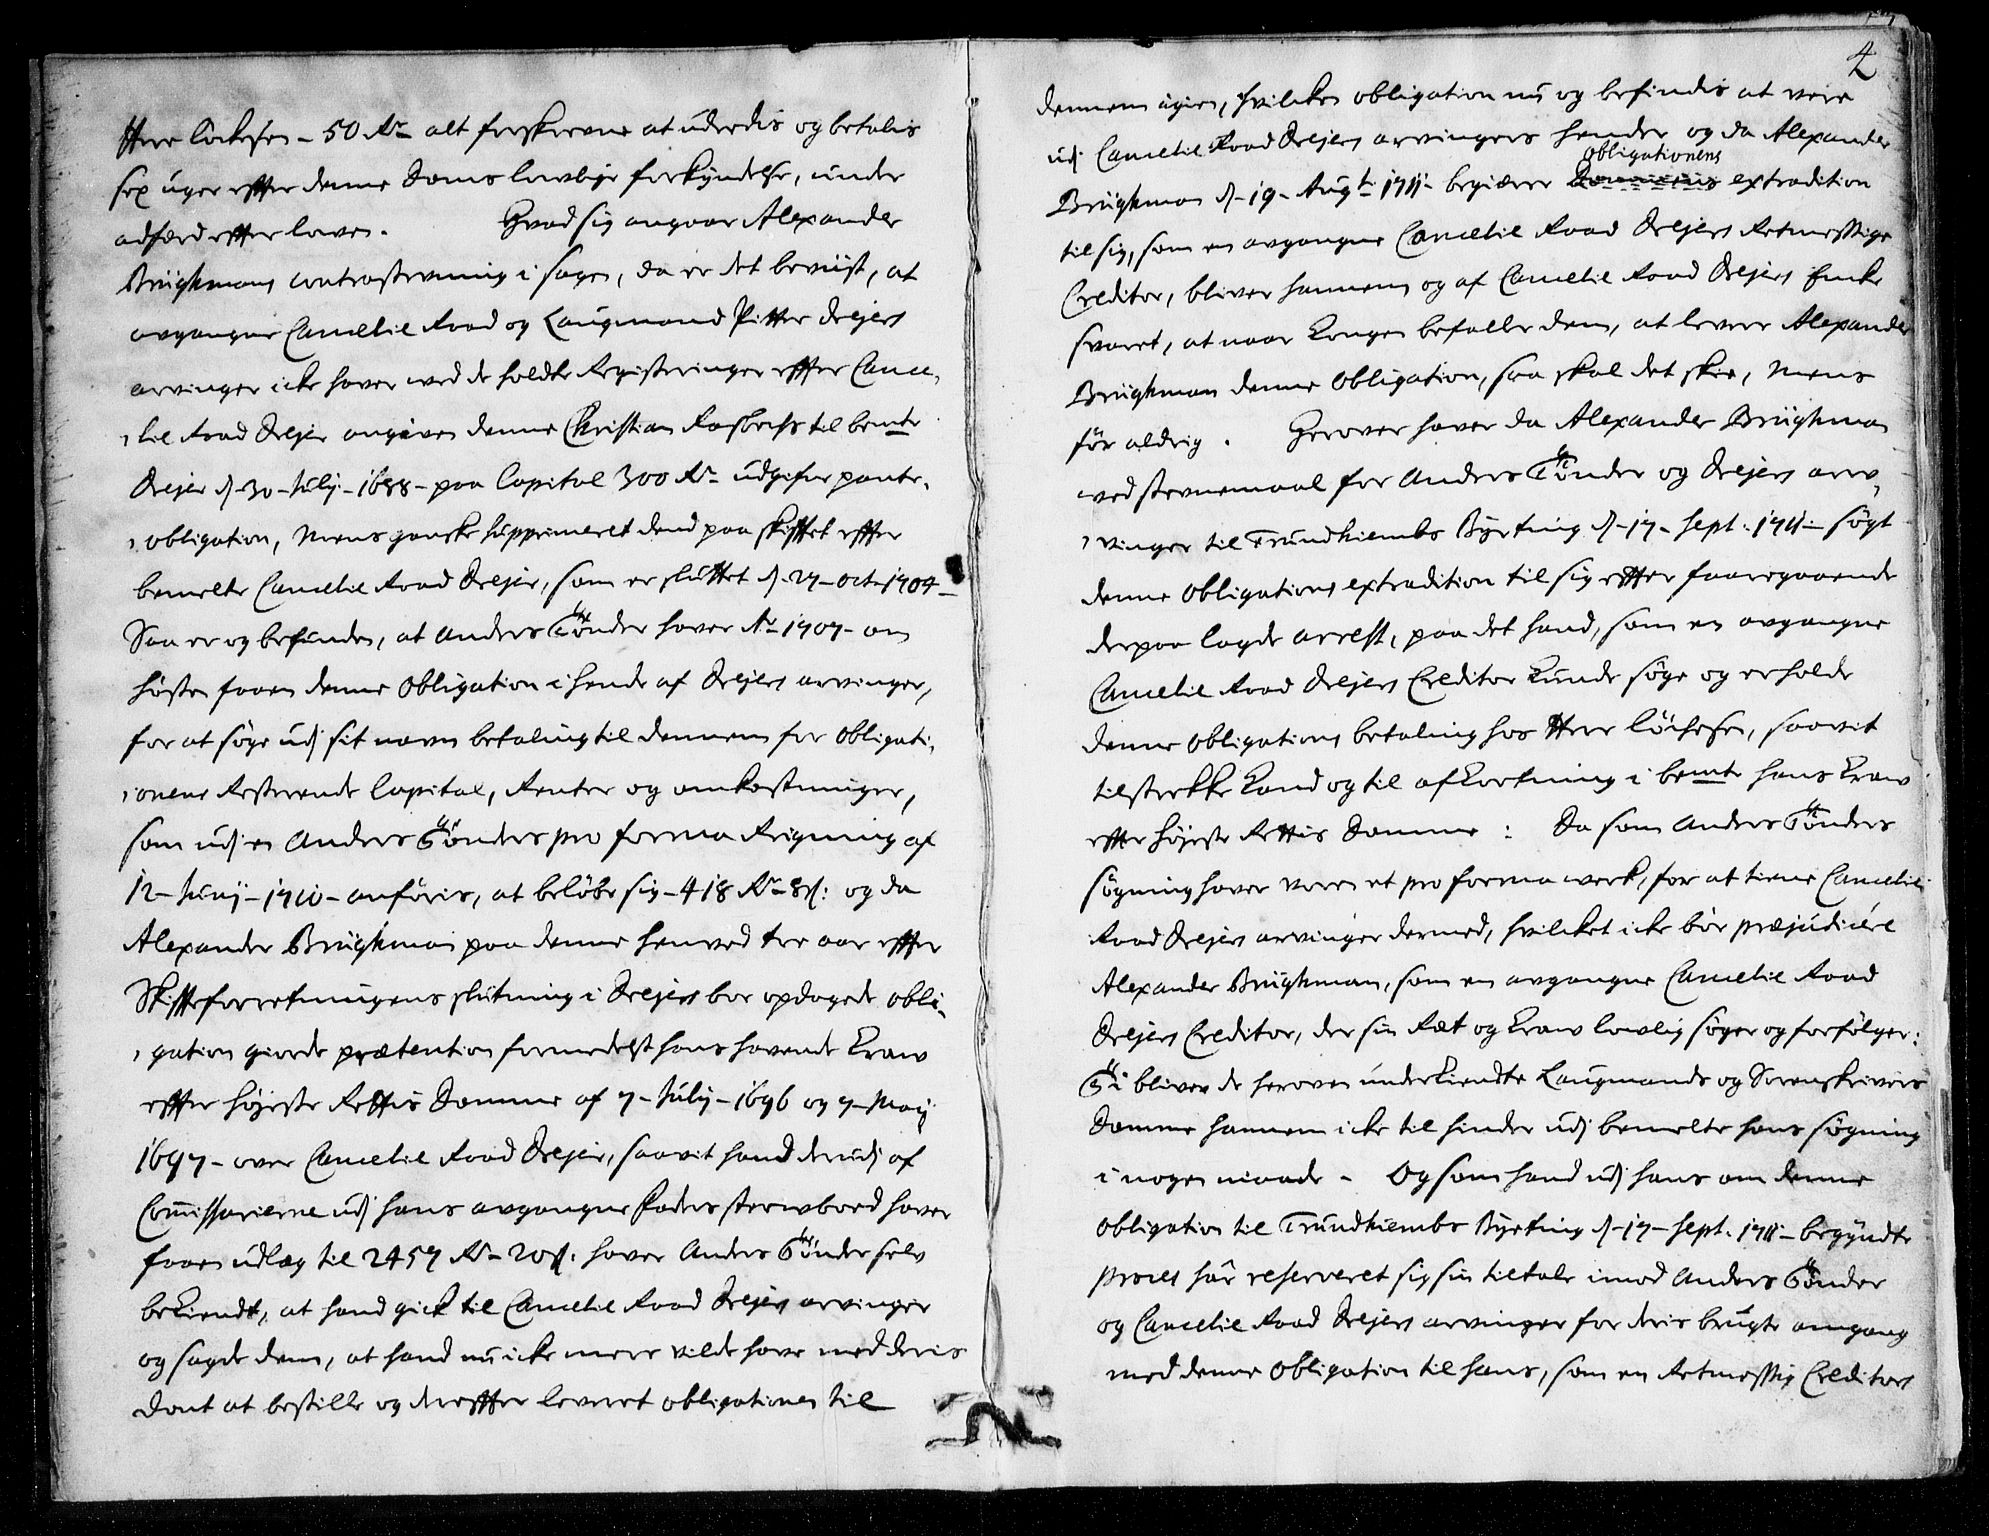 Herr Lochesen - 50 Rdr alt forskrevne at uderdis og betalis
sex uger effter denne Doms lovlige forkyndelse, under
adfærd effter loven. Hvad sig angaar Alexander
Brüghmans contrastevning i sagen, da er det beviist, at
avgangne Cancelie Raad og Laugmand Pitter Drejers
arvinger icke haver wed de holdte Registeringer effter Cance,
,lie Raad Drejer angiven denne Christian Rasbechs til bemte
Drejer d. 30 July 1688 - paa Capital 300 Rdr udgifne pante,
,obligation, Mens ganske supprimeret dend paa skifftet effter
bemelte Cancelie Raad Drejer, som er sluttet d. 27 - oct - 1704 -
Saa er og befunden, at Anders Tønder haver Ao 1707 - om
høsten faaen denne Obligation i hende af Drejers arvinger,
for at søge udj sit navn betaling til dennem for Obligati,
,onens Resterende Capital, Renter og omkostninger,
som udj en Anders Tønders pro forma Reigning af
12 - Junij - 1710 - anføris, at beløbe sig - 418 Rdr 8 s: og da
Alexander Brüghman paa denne henved tre aar effter
Skiffteforretningens slutning i Drejers boe opdagede obli,
,gation giorde prætention formedelst hans havende Kraw
effter højeste Rettis Domme af 7 - July - 1696 og 7 - Maij
1697 - over Cancelie Raad Drejer, saavit hand derudj af
Commissarierne udj hans avgangne Faders sterwboed haver
faaen udlæg til 2457 Rdr 20 s: haver Anders Tønder selv
bekiendt, at hand gick til Cancelie Raad Drejers arvinger
og sagde dem, at hand nu icke mere vilde have med deris
dont at bestille og dereffter leveret obligationen til
4
dennem igien, hvilcken obligation nu og befindis at vere
udj Cancelie Raad Drejers arvingers hender og da Alexander
obligationens
Brüghman d. 19 - Augti 1711 - begierer extradition
til sig, som en avgangne Cancelie Raad Drejers Retmessige
Creditor, bliver hannem og af Cancelie Raad Drejers Enke
svaret, at naar Kongen befaller dem, at levere Alexander
Brüghman denne Obligation, saa skal det skee, Mens
før aldrig. Herover haver da Alexander Brüghman
ved stevnemaal for Anders Tønder og Drejers arv,
,vinger til Trundhiembs Byeting d. 17 - Sept. 1711 - søgt
denne Obligations extradition til sig effter foregaaende
derpaa lagde arrest, paa det hand, som en avgangne
Cancelie Raad Drejers Creditor kunde søge og erholde
denne Obligations betaling hos Herr Løchesen, saavit
tilstrekke kand og til afkortning i bemte hans kraw
effter højeste Rettis Domme: Da som Anders Tønders
søgning haver veren et pro forma werk, for at tiene Cancelie
Raad Drejers arvinger dermed, hvilcket icke bør præjudicere
Alexander Brüghman, som en avgangne Cancelie Raad
Drejers Creditor, der sin Ræt og Kraw lovlig søger og forfølger:
Ti bliver de heroven underkiendte Laugmands og Sorenskrivers
Domme hannem icke til hinder udj bemelte hans søgning
i nogen maade - Og som hand udj hans om denne
Obligation til Trundhiembs Byeting d. 17 - Sept. 1711 - begyndte
Proces har reserveret sig sin tiltale imod Anders Tønder
og Cancelie Raad Drejers arvinger for deris brugte omgang
med denne Obligation til hans, som en Retmessig Creditors